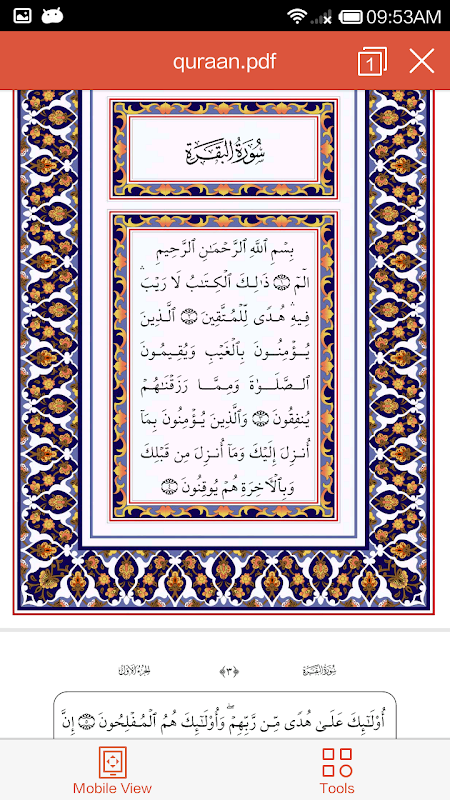 09:53AM
quraan.pdf
1
سُورَةُ البَقَرَةِ
بِسْمِ ٱللَّهِ ٱلرَّحْمَٰنِ ٱلرَّحِيمِ
الٓمٓ ۝١ ذَٰلِكَ ٱلْكِتَٰبُ لَا رَيْبَۛ
فِيهِۛ هُدًى لِّلْمُتَّقِينَ ۝٢ ٱلَّذِينَ
يُؤْمِنُونَ بِٱلْغَيْبِ وَيُقِيمُونَ
ٱلصَّلَوٰةَ وَمِمَّا رَزَقْنَٰهُمْ
يُنفِقُونَ ۝٣ وَٱلَّذِينَ يُؤْمِنُونَ بِمَآ
أُنزِلَ إِلَيْكَ وَمَآ أُنزِلَ مِن قَبْلِكَ
وَبِٱلْءَاخِرَةِ هُمْ يُوقِنُونَ ۝٤
سُورَةُ البَقَرَةِ ﴿٣﴾ الجُزءُ الأَوَّلُ
أُو۟لَٰٓئِكَ عَلَىٰ هُدًى مِّن رَّبِّهِمْۖ وَأُو۟لَٰٓئِكَ هُمُ ٱلْمُفْلِحُونَ ۝٥ إِنَّ
Mobile View
Tools